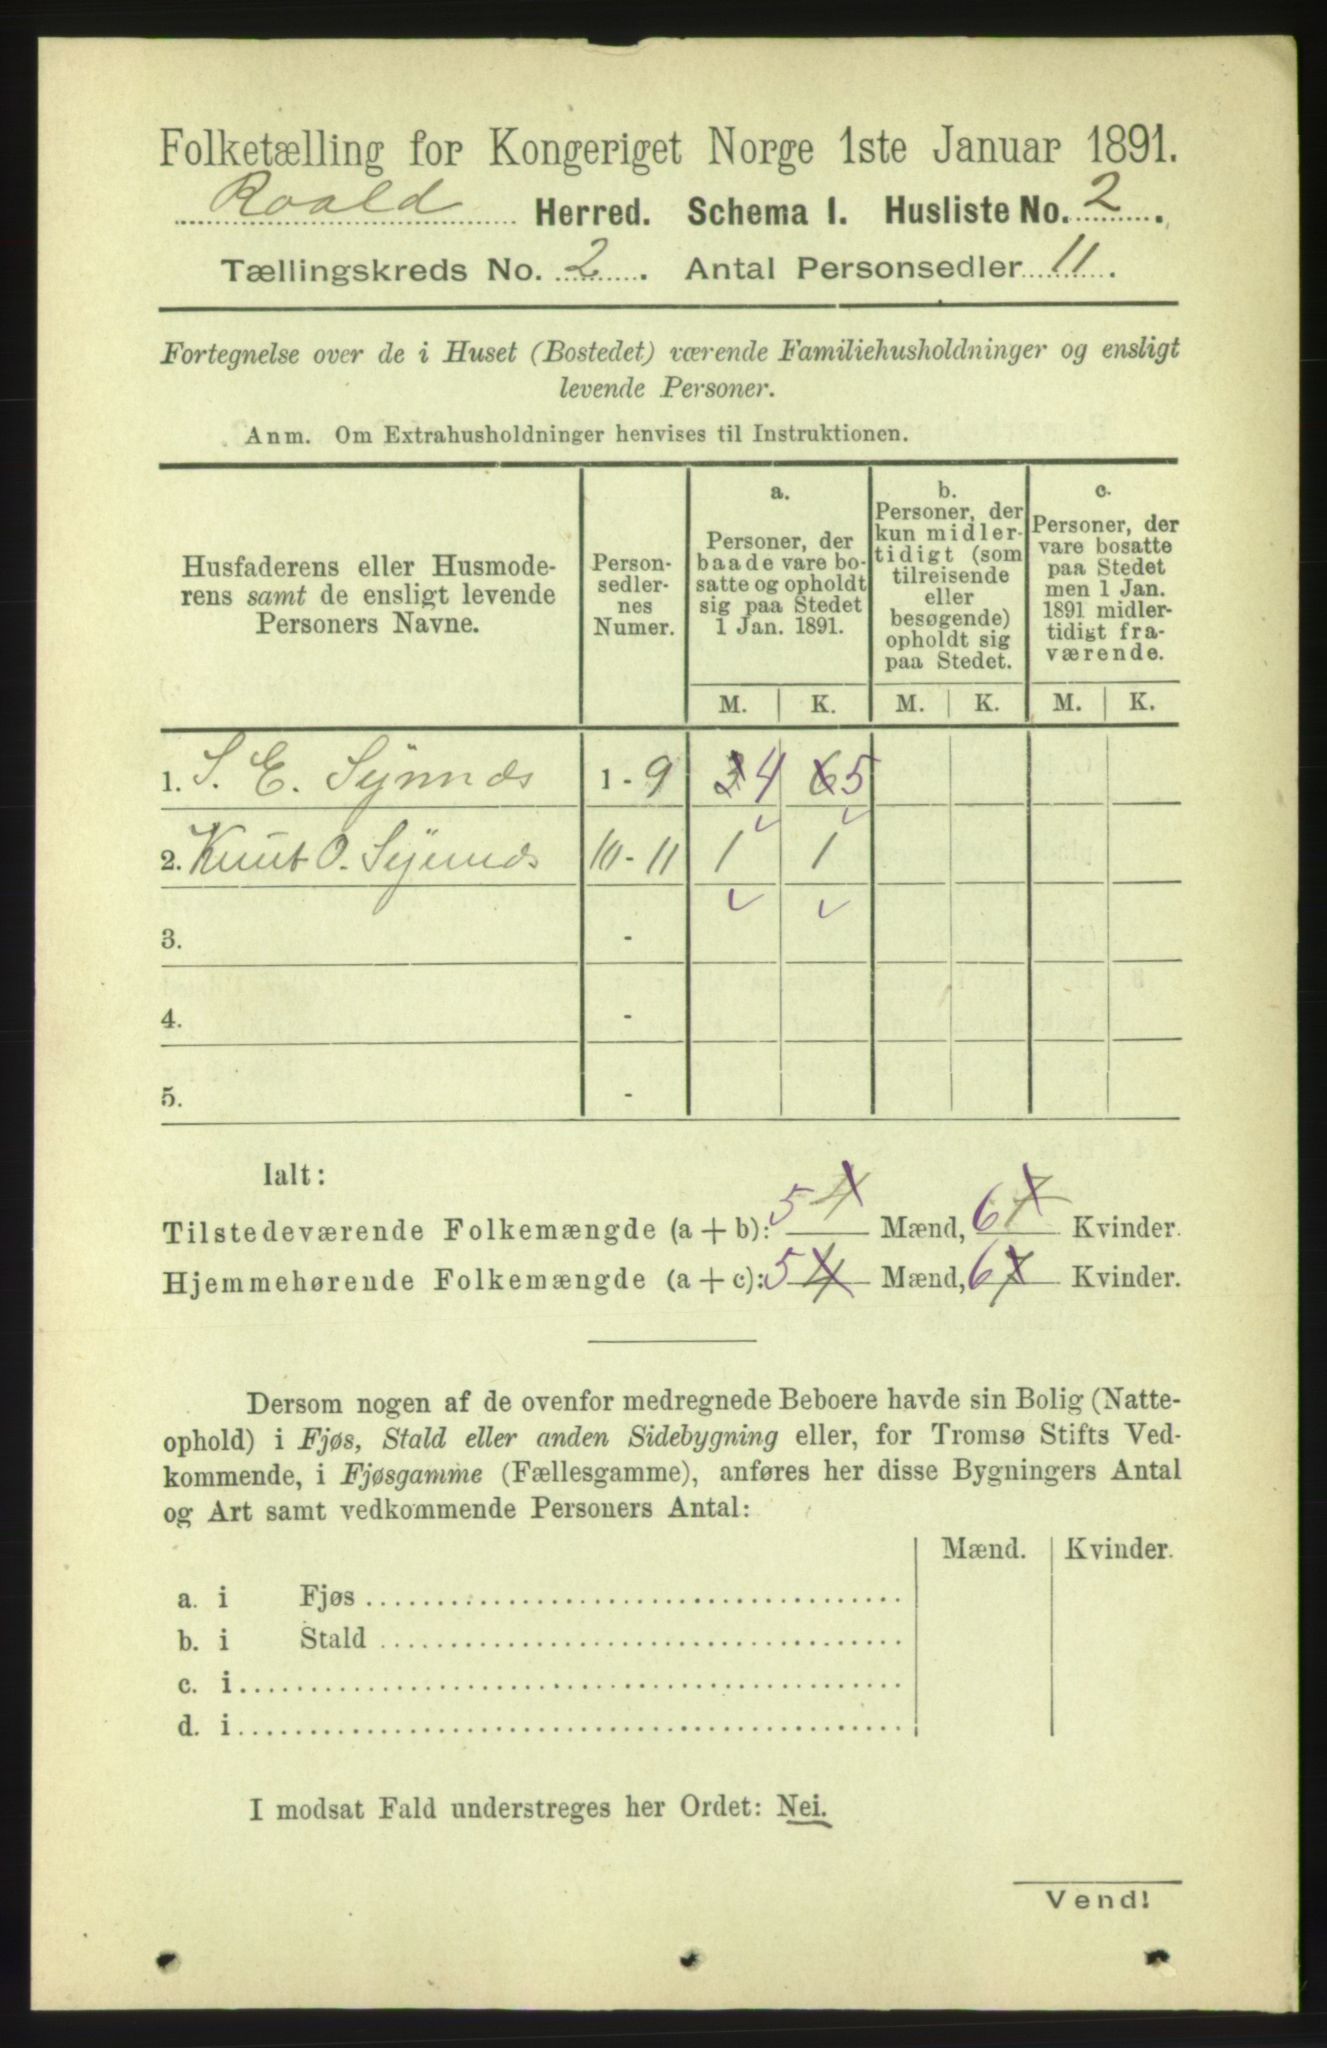 Folketælling for Kongeriget Norge 1ste Januar 1891.
Roald Herred. Schema I. Husliste No. 2.
Tællingskreds No. 2. Antal Personsedler 11.
Fortegnelse over de i Huset (Bostedet) værende Familiehusholdninger og ensligt
levende Personer.
Anm. Om Extrahusholdninger henvises til Instruktionen.
Husfaderens eller Husmode-
rens samt de ensligt levende
Personers Navne.
Person-
sedler-
nes
Numer.
a.
Personer, der
baade vare bo-
satte og opholdt
sig paa Stedet
1 Jan. 1891.
b.
Personer, der
kun midler-
tidigt (som
tilreisende
eller
besøgende)
opholdt sig
paa Stedet.
c.
Personer, der
vare bosatte
paa Stedet
men 1 Jan.
1891 midler-
tidigt fra-
værende.
M. K. M. K. M. K.
1. S. E. Synnes 1 - 9 3 4 6 5
2. Knut O. Synnes 10 - 11 1 1
3. -
4. -
5. -
Ialt:
Tilstedeværende Folkemængde (a + b): 5 4 Mænd, 6 7 Kvinder.
Hjemmehørende Folkemængde (a + c): 5 4 Mænd, 6 7 Kvinder.
Dersom nogen af de ovenfor medregnede Beboere havde sin Bolig (Natte-
ophold) i Fjøs, Stald eller anden Sidebygning eller, for Tromsø Stifts Ved-
kommende, i Fjøsgamme (Fællesgamme), anføres her disse Bygningers Antal
og Art samt vedkommende Personers Antal:
Mænd. Kvinder.
a. i Fjøs
b. i Stald
c. i
d. i
I modsat Fald understreges her Ordet: Nei.
Vend!